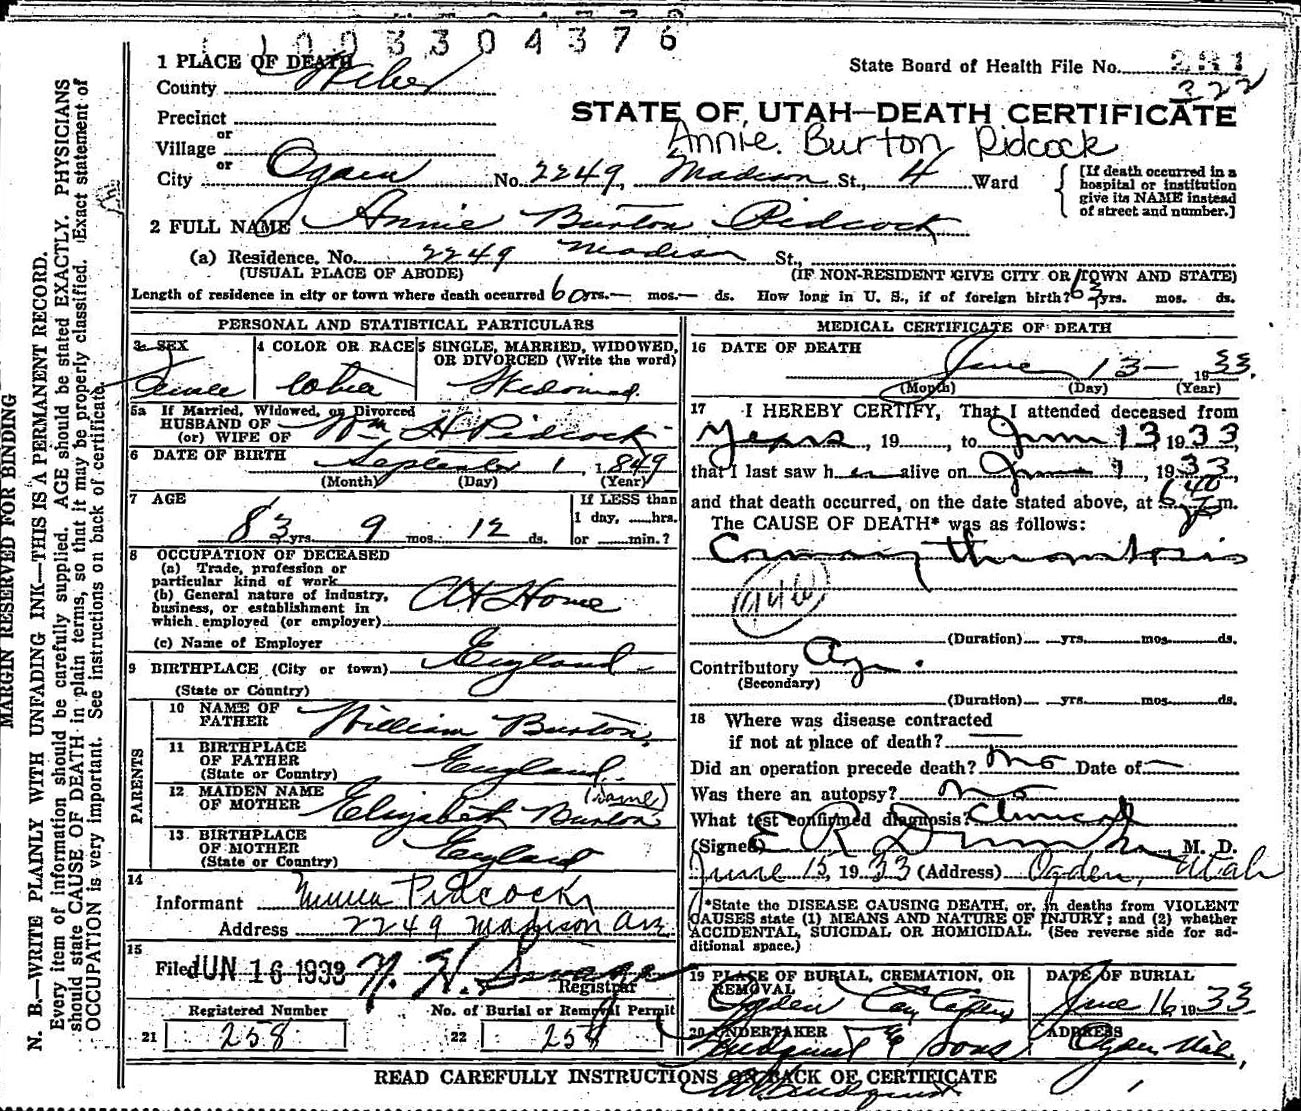 1003304376
1 PLACE OF DEATH
County Weber
State Board of Health File No. 281
322
STATE OF UTAH—DEATH CERTIFICATE
Precinct
or
Village
Annie. Burton Pidcock
or
City Ogden No. 2249, Madison St., 4 Ward
[If death occurred in a
hospital or institution
give its NAME instead
of street and number.]
2 FULL NAME Annie Burton Pidcock
(a) Residence. No. 2249 Madison St.,
(USUAL PLACE OF ABODE) (IF NON-RESIDENT GIVE CITY OR TOWN AND STATE)
Length of residence in city or town where death occurred 60 yrs. — mos. — ds. How long in U. S., if of foreign birth? yrs. mos. ds.
PERSONAL AND STATISTICAL PARTICULARS
3 SEX
Female
4 COLOR OR RACE
White
5 SINGLE, MARRIED, WIDOWED,
OR DIVORCED (Write the word)
Widowed
5a If Married, Widowed, or Divorced
HUSBAND OF
(or) WIFE OF Wm H Pidcock
6 DATE OF BIRTH September 1, 1849
(Month) (Day) (Year)
7 AGE
83 yrs. 9 mos. 12 ds.
If LESS than
1 day, hrs.
or min.?
8 OCCUPATION OF DECEASED
(a) Trade, profession or
particular kind of work
(b) General nature of industry,
business, or establishment in
which employed (or employer)
At Home
(c) Name of Employer
9 BIRTHPLACE (City or town) England
(State or Country)
PARENTS
10 NAME OF
FATHER William Burton
11 BIRTHPLACE
OF FATHER England
(State or Country)
12 MAIDEN NAME
OF MOTHER Elizabeth Burton (same)
13 BIRTHPLACE
OF MOTHER England
(State or Country)
14
Informant Pidcock
Address 2249 Madison Ave
15
Filed JUN 16 1933 N. H. Savage
Registrar
Registered Number No. of Burial or Removal Permit
21 258 22 258
MEDICAL CERTIFICATE OF DEATH
16 DATE OF DEATH
June 13— 1933.
(Month) (Day) (Year)
17 I HEREBY CERTIFY, That I attended deceased from
Years, 19, to June 13, 1933
that I last saw her alive on June 1, 1933,
and that death occurred, on the date stated above, at 6:40 P m.
The CAUSE OF DEATH* was as follows:
Coronary thrombosis
94b
(Duration) yrs. mos. ds.
Contributory Age.
(Secondary)
(Duration) yrs. mos. ds.
18 Where was disease contracted
if not at place of death? —
Did an operation precede death? no Date of —
Was there an autopsy? no
What test confirmed diagnosis? Clinical
(Signed) E R Dumke, M. D.
June 15, 1933 (Address) Ogden, Utah
*State the DISEASE CAUSING DEATH, or, in deaths from VIOLENT
CAUSES state (1) MEANS AND NATURE OF INJURY; and (2) whether
ACCIDENTAL, SUICIDAL OR HOMICIDAL. (See reverse side for ad-
ditional space.)
19 PLACE OF BURIAL, CREMATION, OR
REMOVAL
Ogden City Cemetery
DATE OF BURIAL
June 16, 1933
20 UNDERTAKER
Lindquist & Sons
ADDRESS
Ogden Utah,
READ CAREFULLY INSTRUCTIONS ON BACK OF CERTIFICATE
Lindquist
MARGIN RESERVED FOR BINDING
N. B.—WRITE PLAINLY WITH UNFADING INK—THIS IS A PERMANENT RECORD.
Every item of information should be carefully supplied. AGE should be stated EXACTLY. PHYSICIANS
should state CAUSE OF DEATH in plain terms, so that it may be properly classified. Exact statement of
OCCUPATION is very important. See instructions on back of certificate.